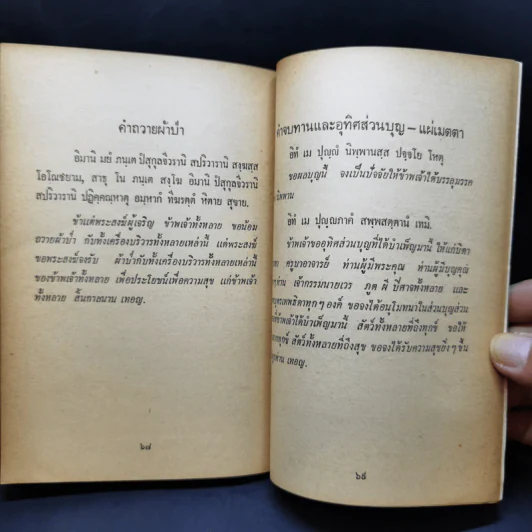 คำถวายผ้าป่า
อิมานิ มยํ ภนฺเต ปํสุกูลจีวรานิ สปริวารานิ สงฺฆสฺส
โอโณชยาม, สาธุ โน ภนฺเต สงฺโฆ อิมานิ ปํสุกูลจีวรานิ
สปริวารานิ ปฏิคฺคณฺหาตุ อมฺหากํ ทีฆรตฺตํ หิตาย สุขาย.
ข้าแต่พระสงฆ์ผู้เจริญ ข้าพเจ้าทั้งหลาย ขอน้อม
ถวายผ้าป่า กับทั้งเครื่องบริวารทั้งหลายเหล่านี้ แด่พระสงฆ์
ขอพระสงฆ์จงรับ ผ้าป่ากับทั้งเครื่องบริวารทั้งหลายเหล่านี้
ของข้าพเจ้าทั้งหลาย เพื่อประโยชน์เพื่อความสุข แก่ข้าพเจ้า
ทั้งหลาย สิ้นกาลนาน เทอญ.
๖๘
คำจบทานและอุทิศส่วนบุญ – แผ่เมตตา
อิทํ เม ปุญฺญํ นิพฺพานสฺส ปจฺจโย โหตุ
ขอผลบุญนี้ จงเป็นปัจจัยให้ข้าพเจ้าได้บรรลุมรรค
นิพพาน
อิทํ เม ปุญฺญภาคํ สพฺพสตฺตานํ เทมิ.
ข้าพเจ้าขออุทิศส่วนบุญที่ได้บำเพ็ญมานี้ ให้แก่บิดา
ครูบาอาจารย์ ท่านผู้มีพระคุณ ท่านผู้มีบุญคุณ
เจ้ากรรมนายเวร ภูต ผี ปีศาจทั้งหลาย และ
ทุกๆ องค์ ขอจงได้อนุโมทนาในส่วนบุญส่วน
ข้าพเจ้าได้บำเพ็ญมานี้ สัตว์ทั้งหลายที่ถึงทุกข์ ขอให้
สัตว์ทั้งหลายที่ถึงสุข ขอจงได้รับความสุขยิ่งๆ ขึ้น
เทอญ.
๖๙